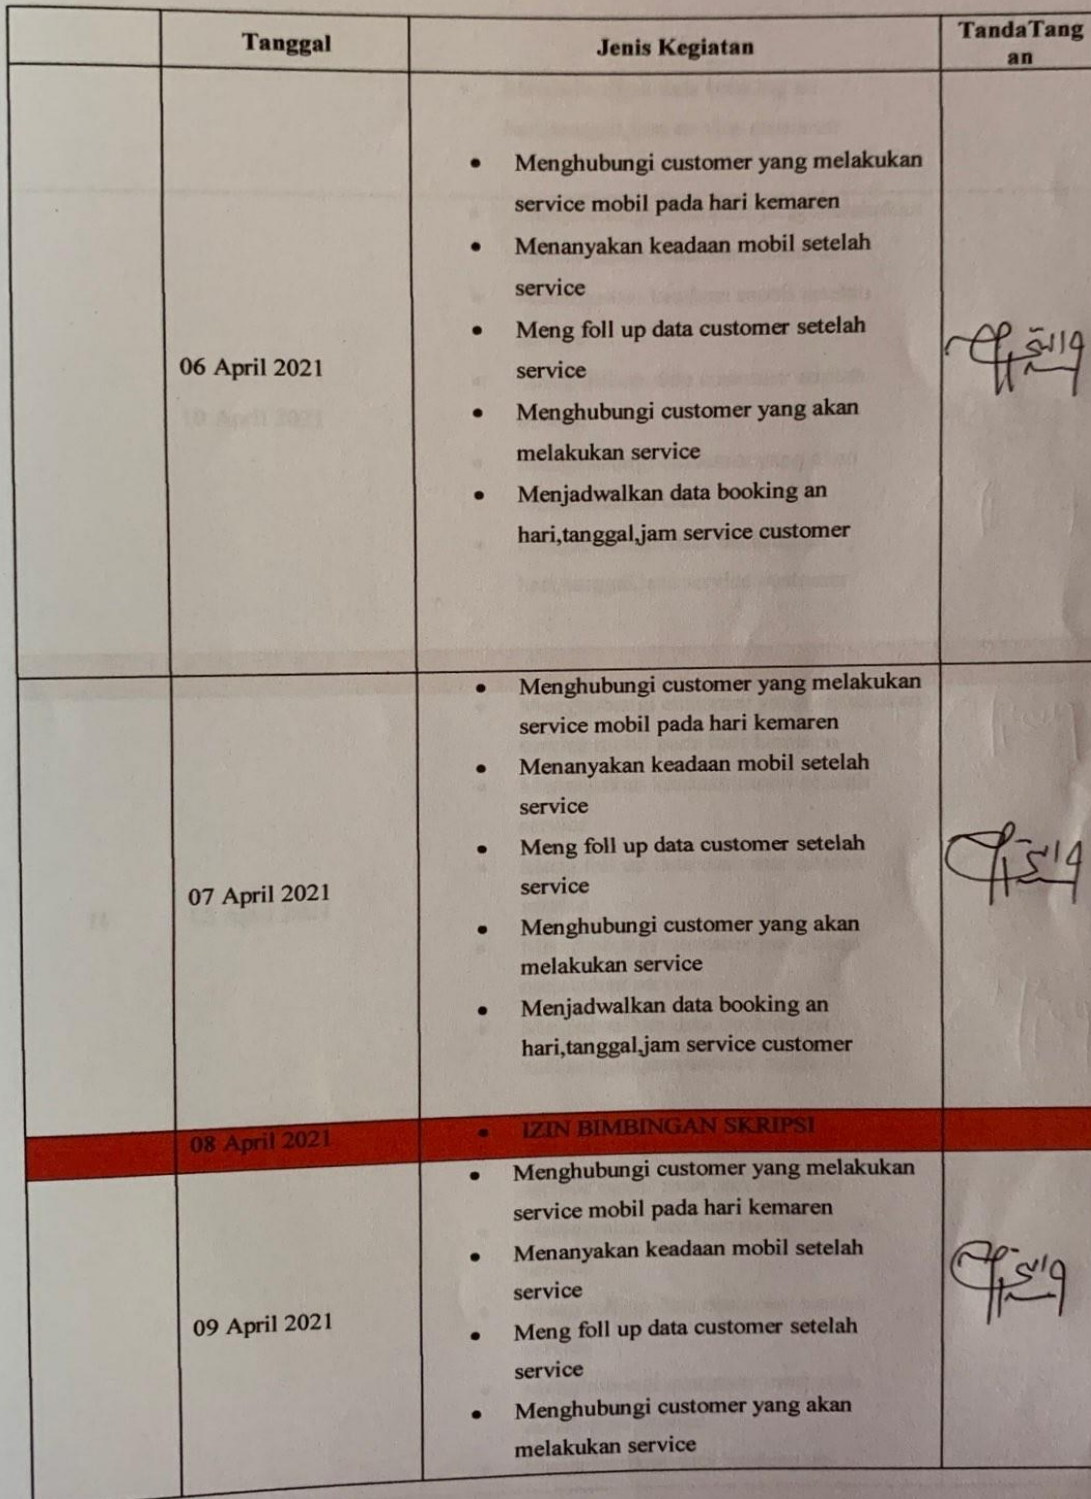 Tanggal
Jenis Kegiatan
TandaTang
an
06 April 2021
• Menghubungi customer yang melakukan
service mobil pada hari kemaren
• Menanyakan keadaan mobil setelah
service
• Meng foll up data customer setelah
service
• Menghubungi customer yang akan
melakukan service
• Menjadwalkan data booking an
hari,tanggal,jam service customer
07 April 2021
• Menghubungi customer yang melakukan
service mobil pada hari kemaren
• Menanyakan keadaan mobil setelah
service
• Meng foll up data customer setelah
service
• Menghubungi customer yang akan
melakukan service
• Menjadwalkan data booking an
hari,tanggal,jam service customer
08 April 2021
• IZIN BIMBINGAN SKRIPSI
09 April 2021
• Menghubungi customer yang melakukan
service mobil pada hari kemaren
• Menanyakan keadaan mobil setelah
service
• Meng foll up data customer setelah
service
• Menghubungi customer yang akan
melakukan service